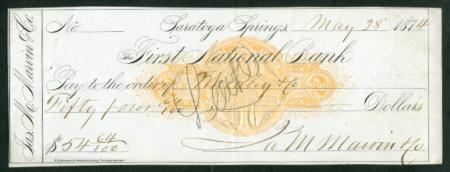 Jas. M. Marvin & Co.
No. Saratoga Springs, May 28 1874
The First National Bank
Pay to the order of
Fifty four 64/100 Dollars
$54 64/100 Jas M Marvin & Co